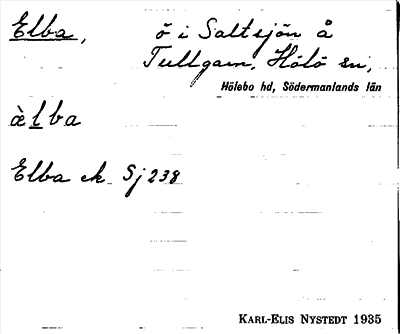 Elba, ö i Saltsjön å
Tullgarn, Hölö sn,
Hölebo hd, Södermanlands län
èlba
Elba ek Sj 238
KARL-ELIS NYSTEDT 1935